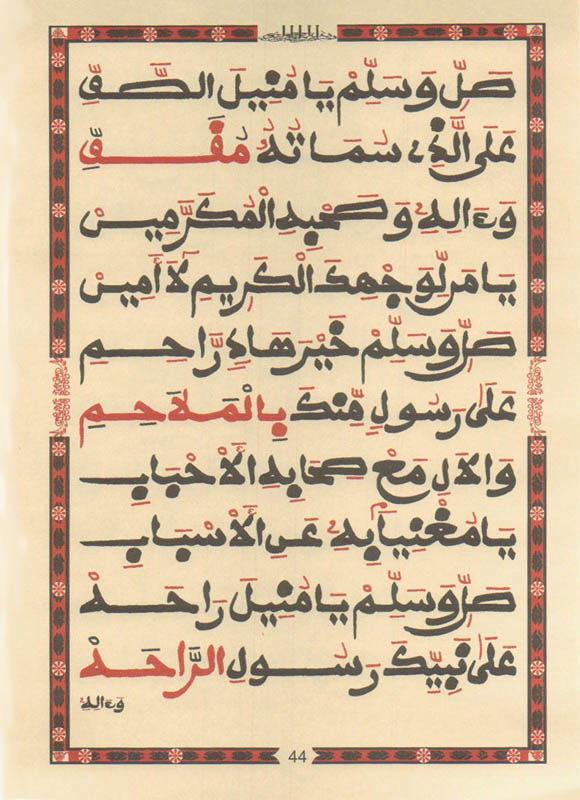 صَلِّ وَسَلِّمْ يَا مُنِيلَ الصَّفِّ
عَلَى الَّذِي سَمَاتُهُ مُقَفِّ
وَءَالِهِ وَصَحْبِهِ الْمُكَرَّمِينْ
يَا مَن لِّوَجْهِكَ الْكَرِيمِ لَا أَمِينْ
صَلِّ وَسَلِّمْ خَيْرَ هَادٍ رَّاحِمِ
عَلَى رَسُولٍ مِّنكَ بِالْمَلَاحِمِ
وَالَالِ مَعْ صَحَابِهِ الْأَحْبَابِ
يَا مُغْنِياً بِهِ عَنِ الْأَسْبَابِ
صَلِّ وَسَلِّمْ يَا مُنِيلَ رَاحَهْ
عَلَى نَبِيِّكَ رَسُولِ الرَّاحَهْ
وَءَالِهِ
44